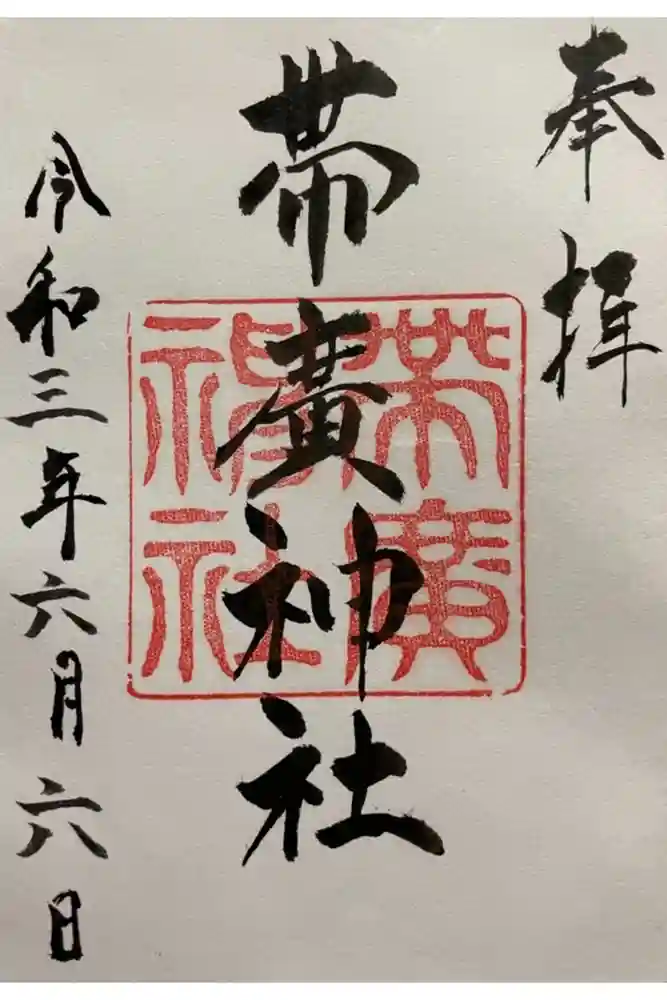 奉拝
帯廣神社
帯廣神社
令和三年六月六日